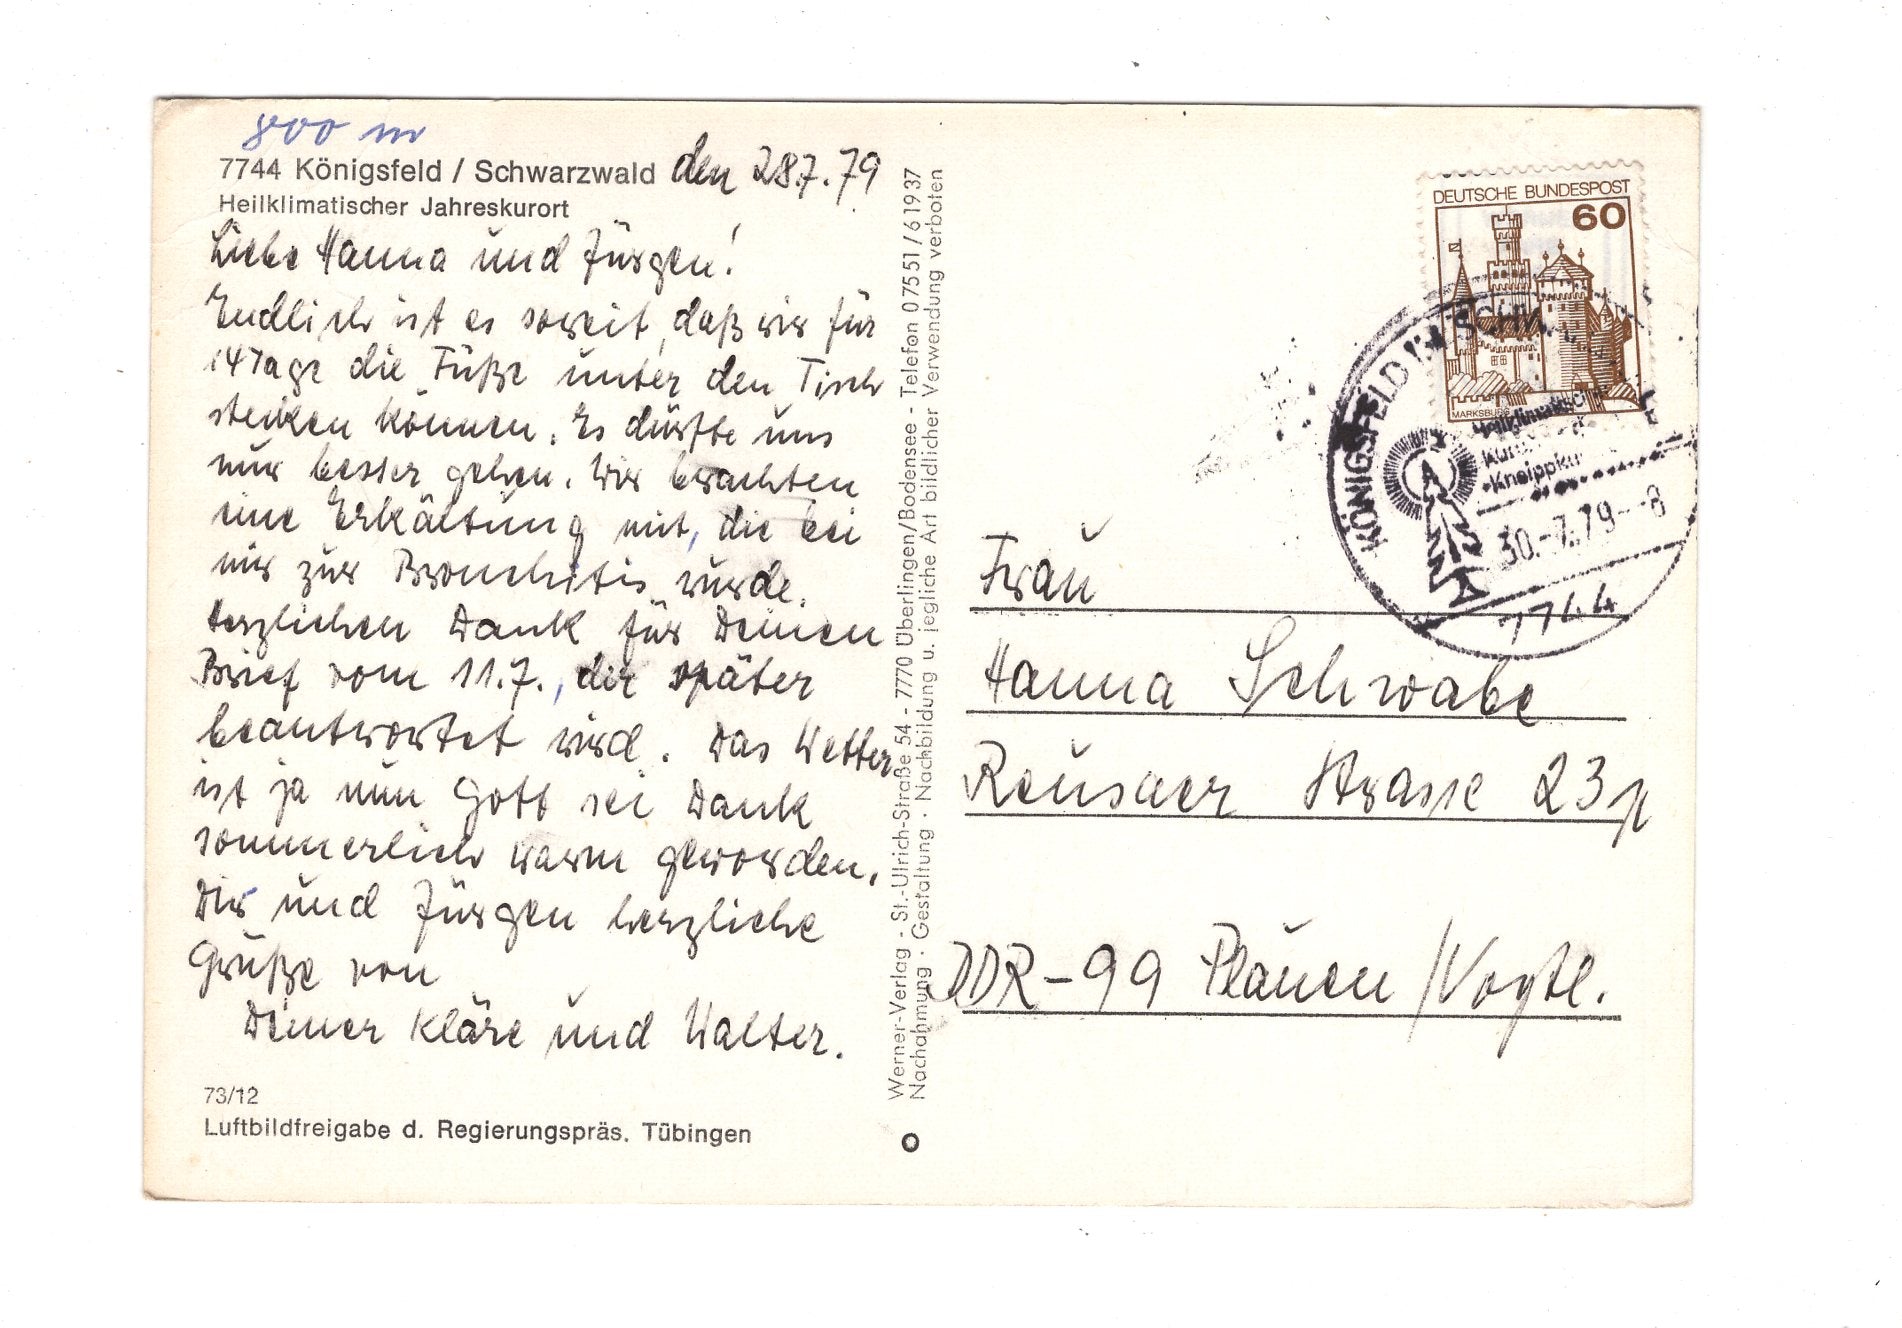 800 m
7744 Königsfeld / Schwarzwald den 28.7.79
Heilklimatischer Jahreskurort
Liebe Hanna und Jürgen!
Endlich ist es soweit, daß wir für
14 Tage die Füße unter den Tisch
stecken können. Es dürfte uns
nur besser gehen. Wir brachten
eine Erkältung mit, die bei
mir zur Bronchitis wurde.
Herzlichen Dank für Deinen
Brief vom 11.7., der später
beantwortet wird. Das Wetter
ist ja nun Gott sei Dank
sommerlich warm geworden.
Dir und Jürgen herzliche
Grüße von
Deiner Kläre und Walter.
73/12
Luftbildfreigabe d. Regierungspräs. Tübingen
Werner-Verlag - St.-Ulrich-Straße 54 - 7770 Überlingen/Bodensee - Telefon 07551/61937
Nachahmung · Gestaltung · Nachbildung u. jegliche Art bildlicher Verwendung verboten
DEUTSCHE BUNDESPOST
60
MARKSBURG
KÖNIGSFELD IM SCHW
Heilklimatisch
Kneippku
30.-7.79--8
7744
Frau
Hanna Schwabe
Reusaer Strasse 23
DDR-99 Plauen/Vogtl.